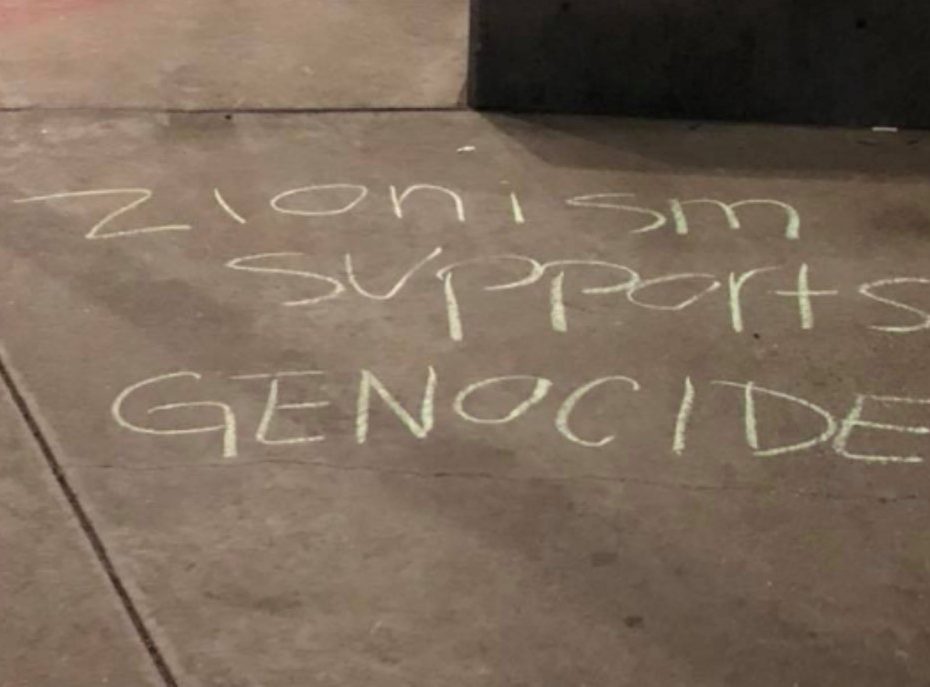 Zionism
supports
GENOCIDE